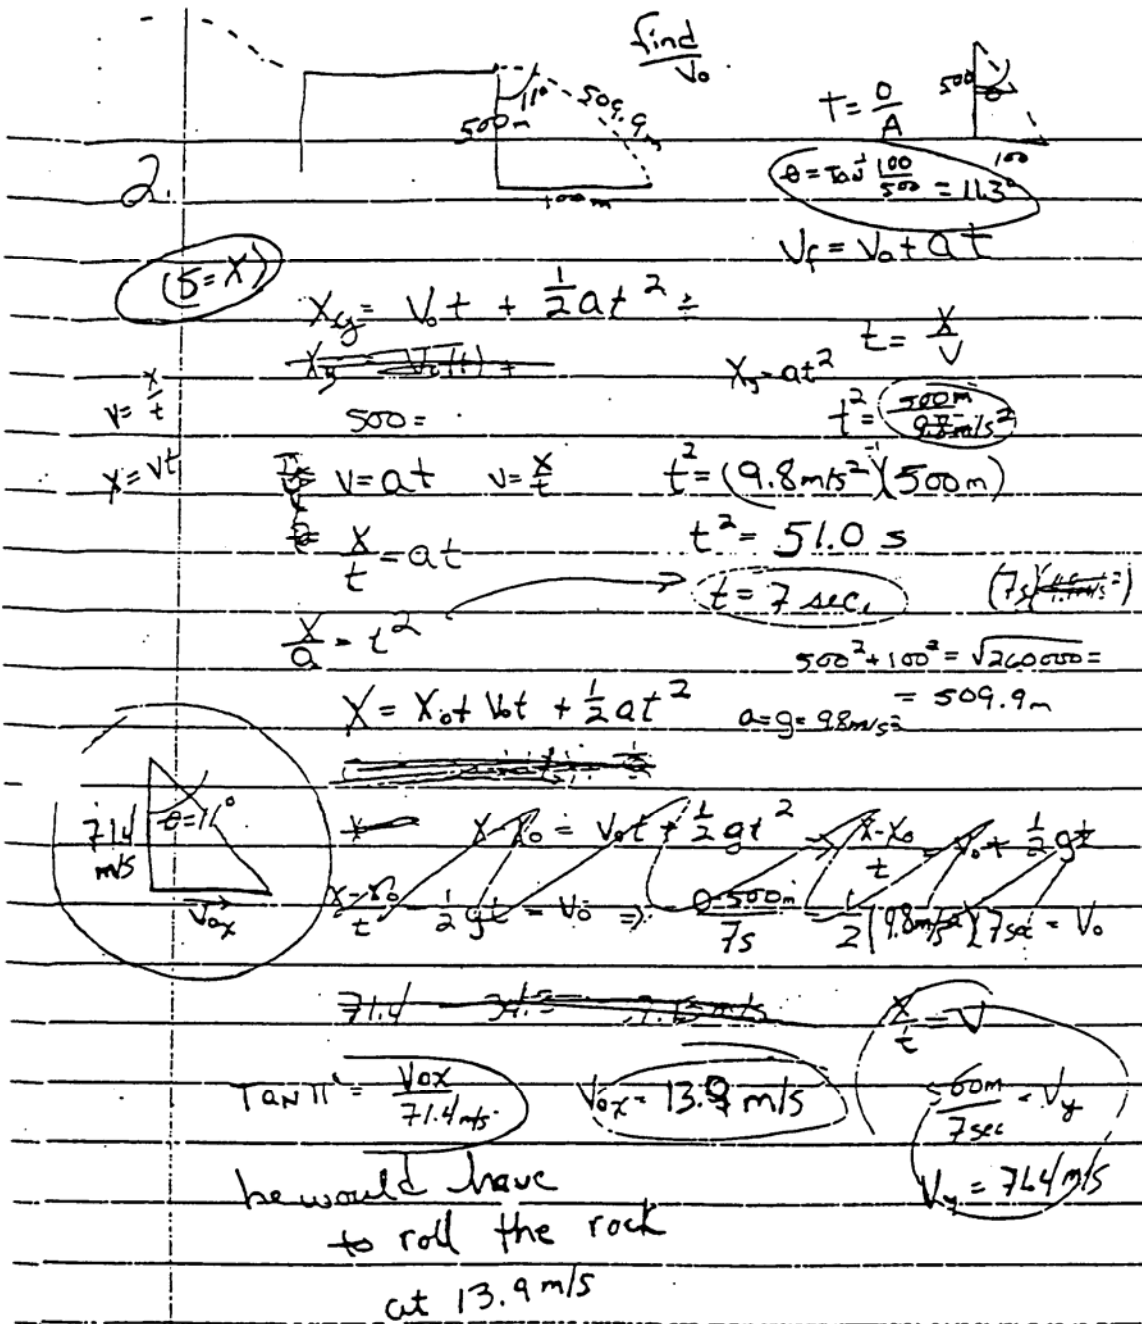 find
V₀
11°
509.9 m
500 m
100 m
T = O/A
500
θ
100
θ = Tan⁻¹ 100/500 = 11.3°
2.
V_f = V₀ + at
(S = X)
X_y = V₀t + ½at² =
t = X/V
X_y = at²
V = X/t
500 =
t² = 500m / 9.8m/s²
X = Vt
V = at V = X/t t² = (9.8 m/s²)⁻¹(500m)
X/t = at
t² = 51.0 s
t = 7 sec.
(7s)
X/a = t²
500² + 100² = √260000 =
= 509.9m
X = X₀ + V₀t + ½at² a = g = 9.8m/s²
71.4 m/s
θ = 11°
V₀ₓ
X - X₀ = V₀t + ½gt² ⇒ X-X₀/t = V₀ + ½gt
X-X₀/t - ½gt = V₀ ⇒ 0-500m/7s - ½(9.8m/s²)(7sec = V₀
71.4
X/t = V
Tan 11° = V₀ₓ / 71.4 m/s V₀ₓ = 13.9 m/s
500m / 7sec = V_y
V_y = 71.4 m/s
he would have
to roll the rock
at 13.9 m/s